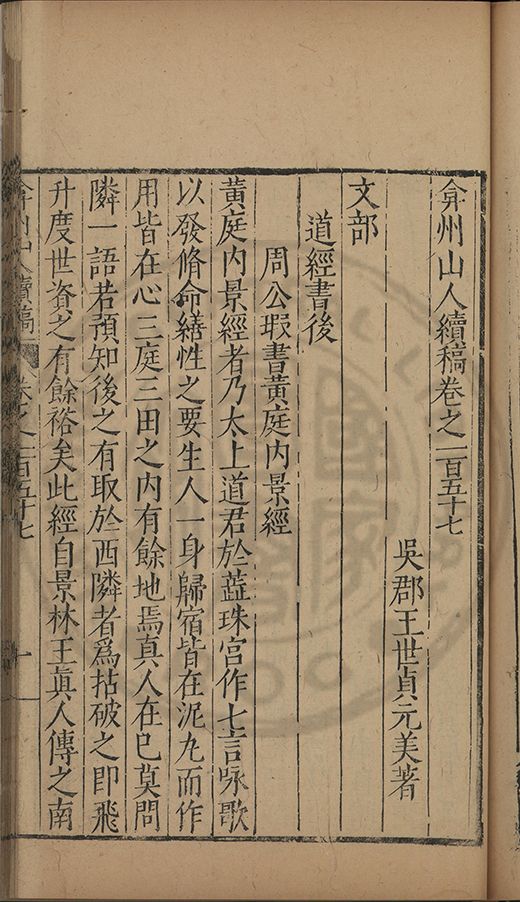 弇州山人續稿卷之一百五十七
吳郡王世貞元美著
文部
道經書後
周公瑕書黃庭內景經
黃庭內景經者乃太上道君於蘂珠宮作七言咏歌
以發脩命繕性之要生人一身歸宿皆在泥九而作
用皆在心三庭三田之內有餘地焉真人在巳莫問
隣一語若預知後之有取於西隣者爲拈破之即飛
升度世資之有餘裕矣此經自景林王真人傳之南
弇州山人續稿 卷之一百五十七 一